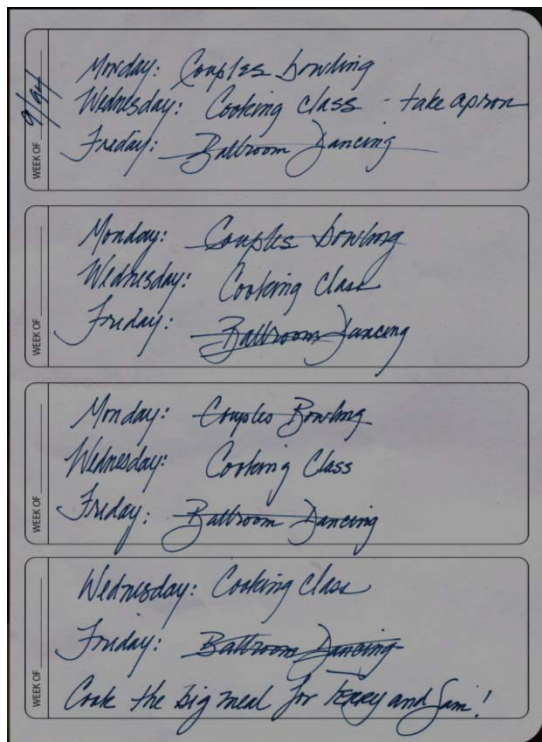 WEEK OF 9/94
Monday: Couples bowling
Wednesday: Cooking class - take apron
Friday: Ballroom Dancing
WEEK OF
Monday: Couples bowling
Wednesday: Cooking Class
Friday: Ballroom Dancing
WEEK OF
Monday: Couples Bowling
Wednesday: Cooking Class
Friday: Ballroom Dancing
WEEK OF
Wednesday: Cooking Class
Friday: Ballroom Dancing
Cook the big meal for and Sam!